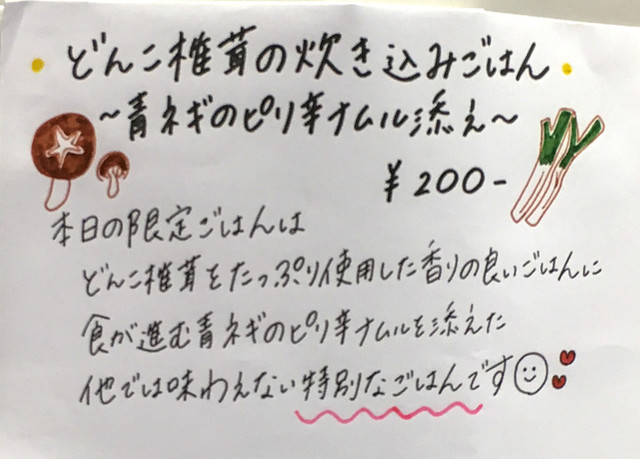 どんこ椎茸の炊き込みごはん
～青ネギのピリ辛ナムル添え～
¥200-
本日の限定ごはんは
どんこ椎茸をたっぷり使用した香りの良いごはんに
食が進む青ネギのピリ辛ナムルを添えた
他では味わえない特別なごはんです